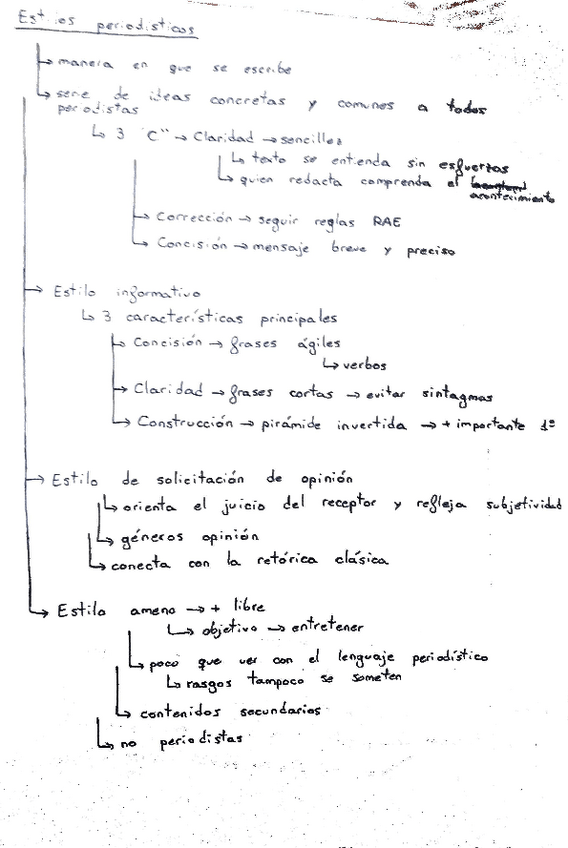 Estilos periodísticos
↳ manera en que se escribe
↳ serie de ideas concretas y comunes a todos
periodistas
↳ 3 "C" → Claridad → sencillez
↳ texto se entienda sin esfuerzos
↳ quien redacta comprenda el
acontecimiento
→ Corrección → seguir reglas RAE
→ Concisión → mensaje breve y preciso
→ Estilo informativo
↳ 3 características principales
→ Concisión → frases ágiles
↳ verbos
→ Claridad → frases cortas → evitar sintagmas
→ Construcción → pirámide invertida → + importante 1º
→ Estilo de solicitación de opinión
↳ orienta el juicio del receptor y refleja subjetividad
↳ géneros opinión
↳ conecta con la retórica clásica
→ Estilo ameno → + libre
↳ objetivo → entretener
↳ poco que ver con el lenguaje periodístico
↳ rasgos tampoco se someten
↳ contenidos secundarios
↳ no periodistas